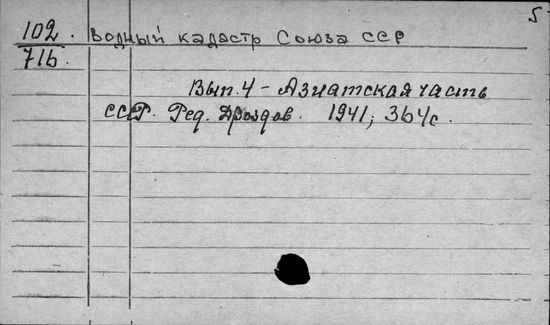 5
102. Водный кадастр Союза ССР
716.
Вып. 4 - Азиатская часть
СССР. Ред. Дроздов. 1941; 364с.